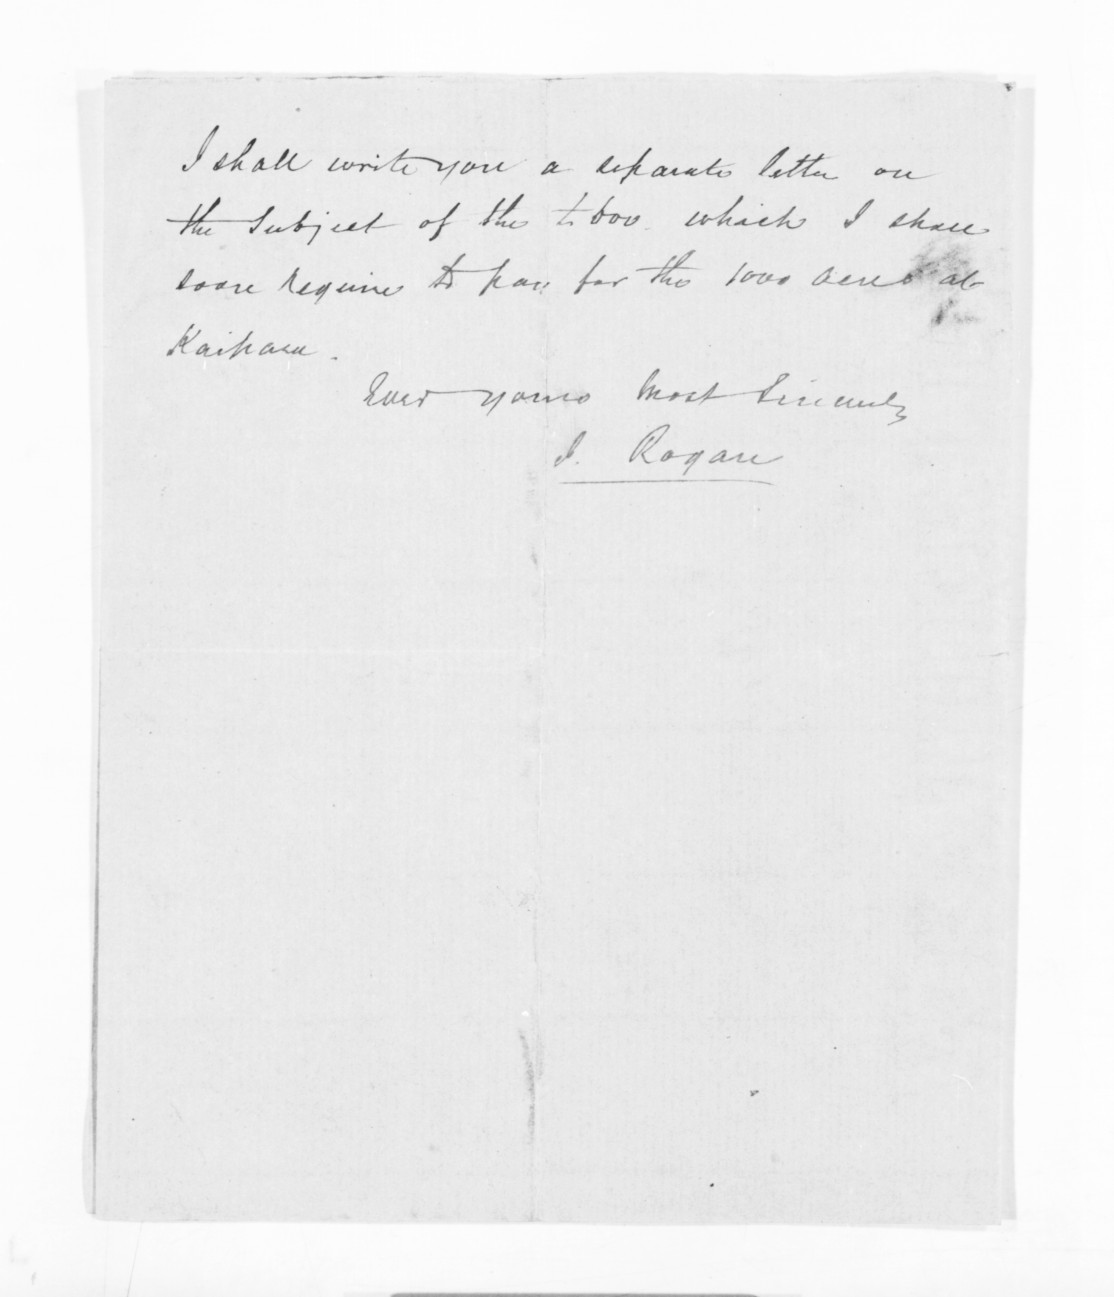 I shall write you a separate letter on
the Subject of the £600 which I shall
soon require to pay for the 1000 acres at
Kaipara.
Ever yours Most Sincerely
J. Rogan